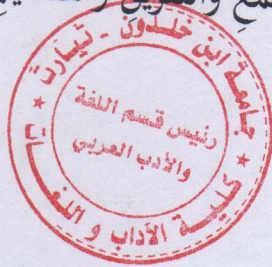 جامعة ابن خلدون - تيارت
رئيس قسم اللغة
والأدب العربي
كلية الآداب و اللغات